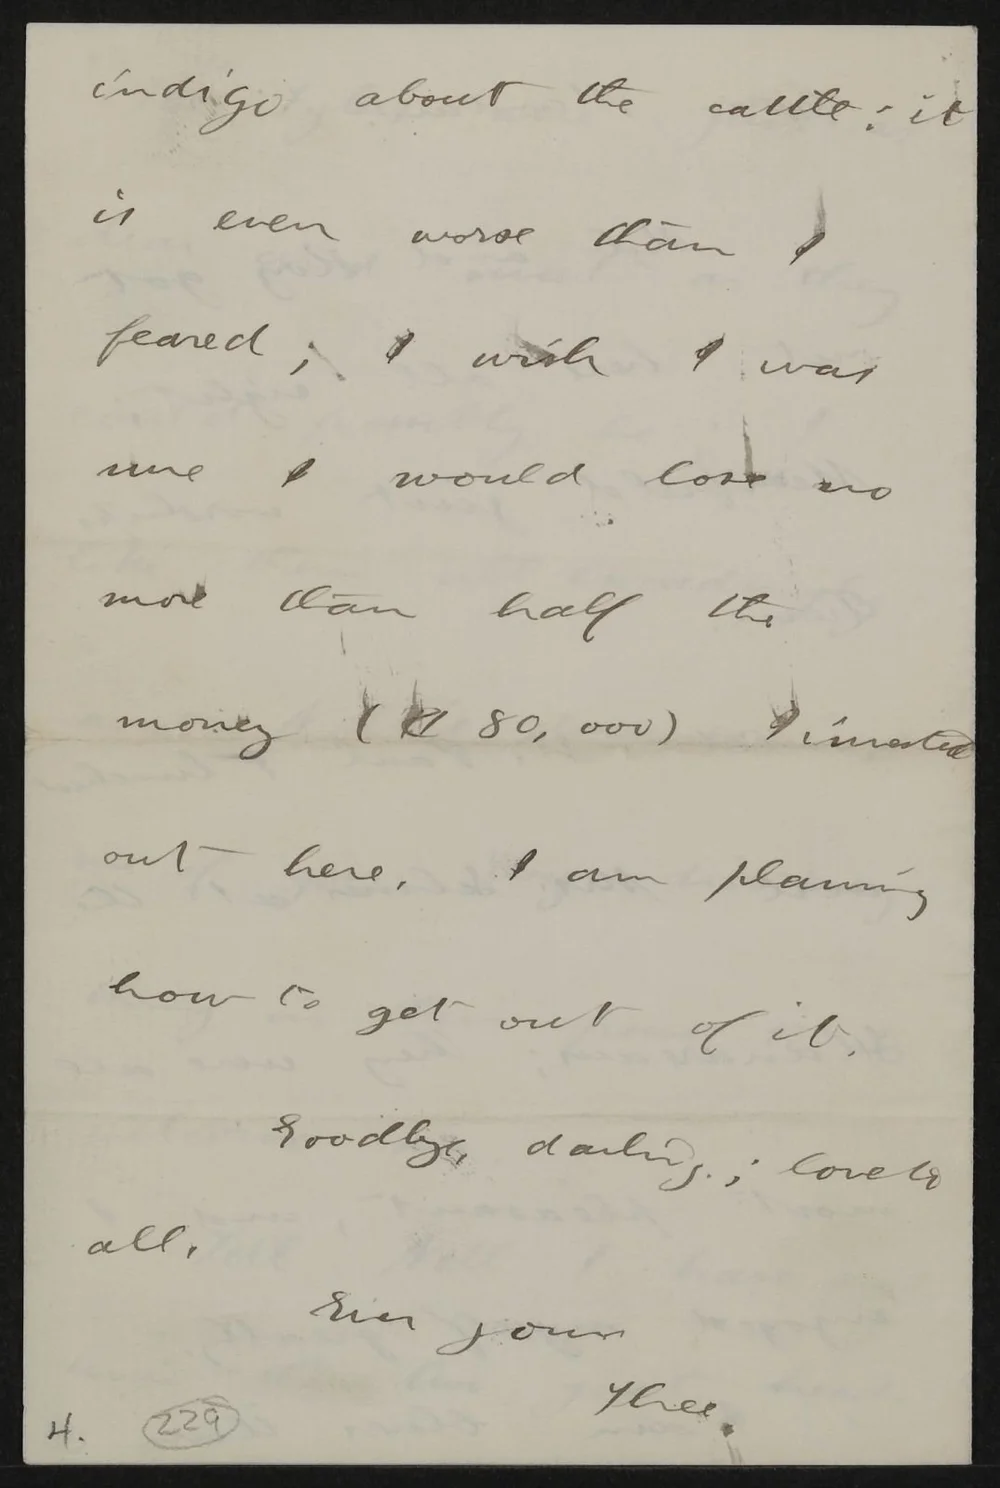 indigo about the cattle; it
is even worse than I
feared; I wish I was
sure I would lose no
more than half the
money ($80,000) I invested
out here. I am planning
how to get out of it.
Goodbye, darling; love to
all.
Ever yours
Thee.
4. 229